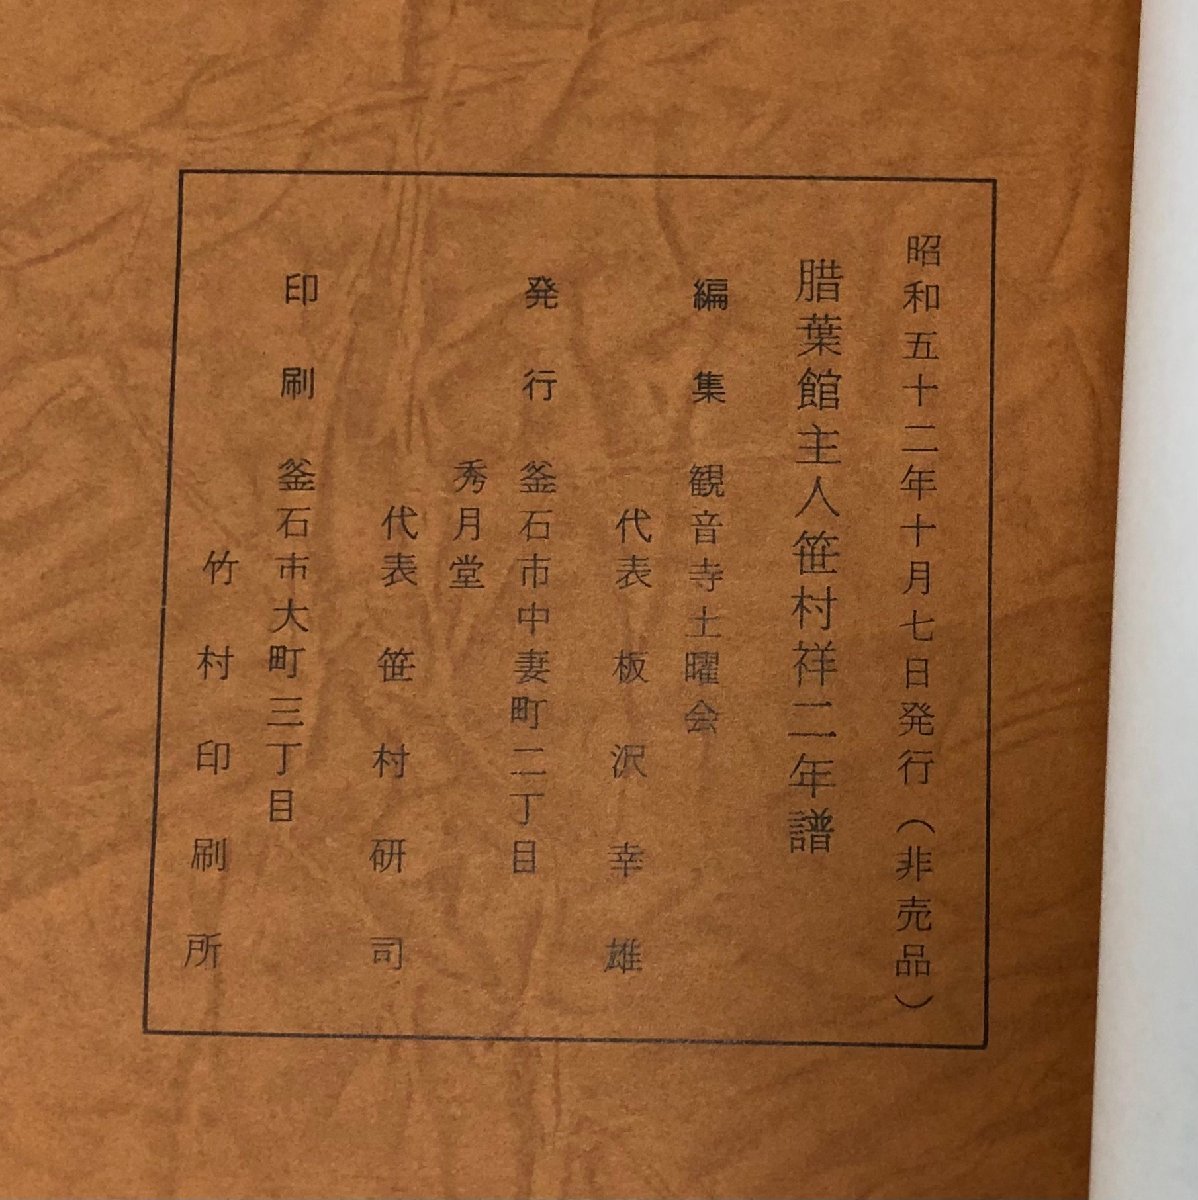 昭和五十二年十月七日発行（非売品）
腊葉館主人笹村祥二年譜
編集 観音寺土曜会
代表 板沢幸雄
発行 釜石市中妻町二丁目
秀月堂
代表 笹村研司
印刷 釜石市大町三丁目
竹村印刷所